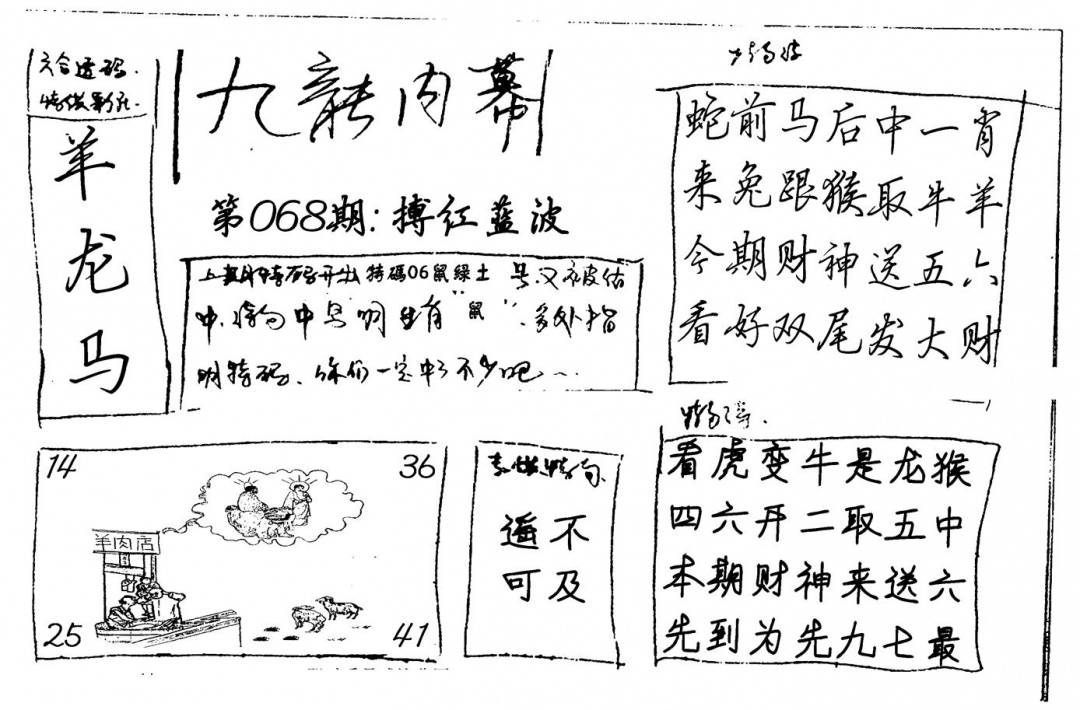 六合透码.
羊
龙
马
九龍内幕
第068期:搏红蓝波
上期特码开出特碼06鼠绿土号,又被估
中.中号明生肖"鼠".多处指
明特码.你们一定中了不少吧~
蛇前马后中一肖
来兔跟猴取牛羊
今期财神送五六
看好双尾发大财
14
36
羊肉店
25
41
遥不
可及
看虎变牛是龙猴
四六开二取五中
本期财神来送六
先到为先九七最